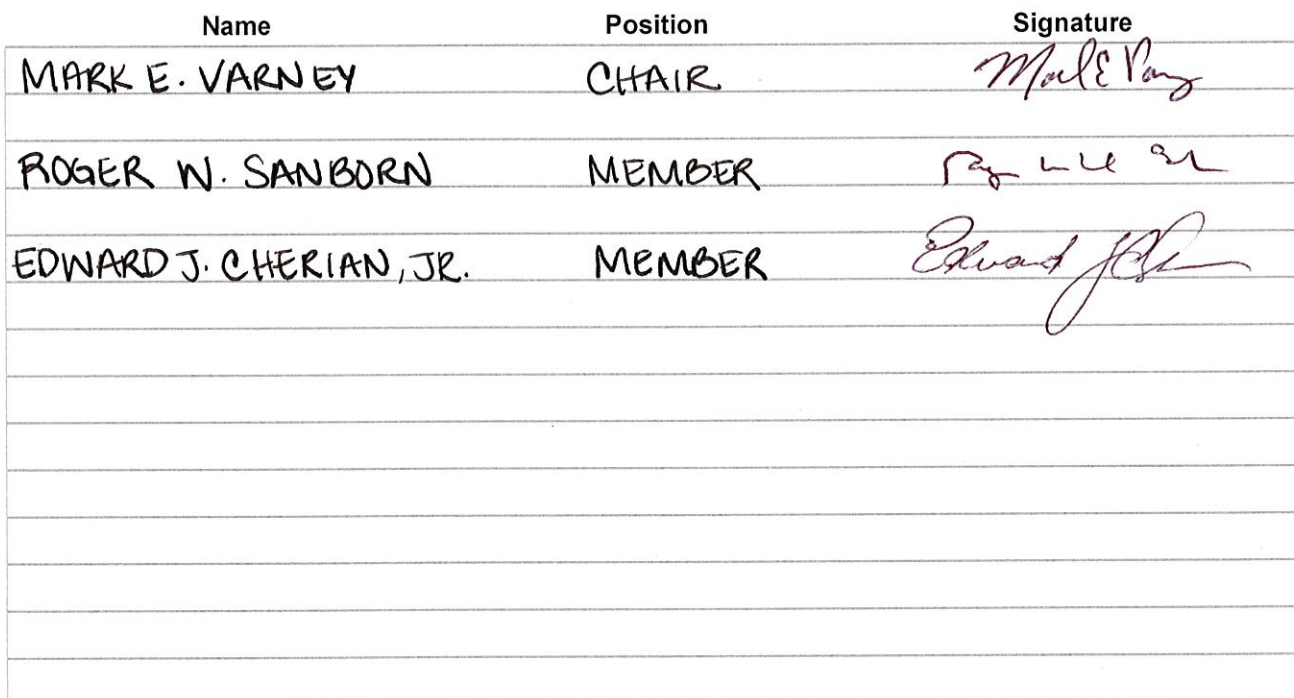 Name Position Signature
MARK E. VARNEY CHAIR
ROGER W. SANBORN MEMBER
EDWARD J. CHERIAN, JR. MEMBER Edward J